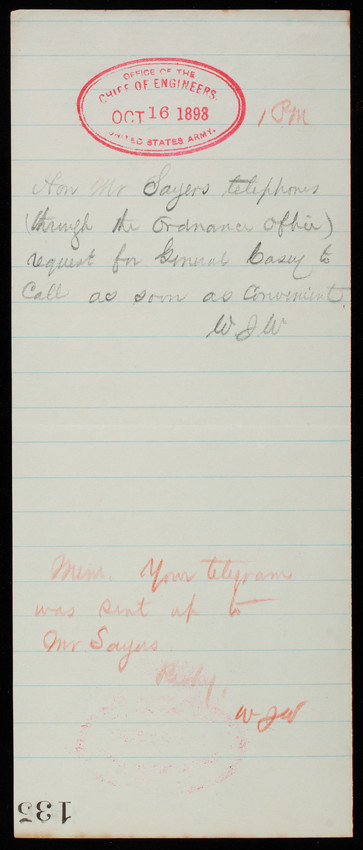 OFFICE OF THE
CHIEF OF ENGINEERS.
OCT 16 1893
UNITED STATES ARMY.
1 PM
Hon Mr Sayers telephones
(through the Ordnance office)
request for General Casey to
Call as soon as Convenient.
W J W
Mem. Your telegram
was sent up to
Mr Sayers.
W J W
135